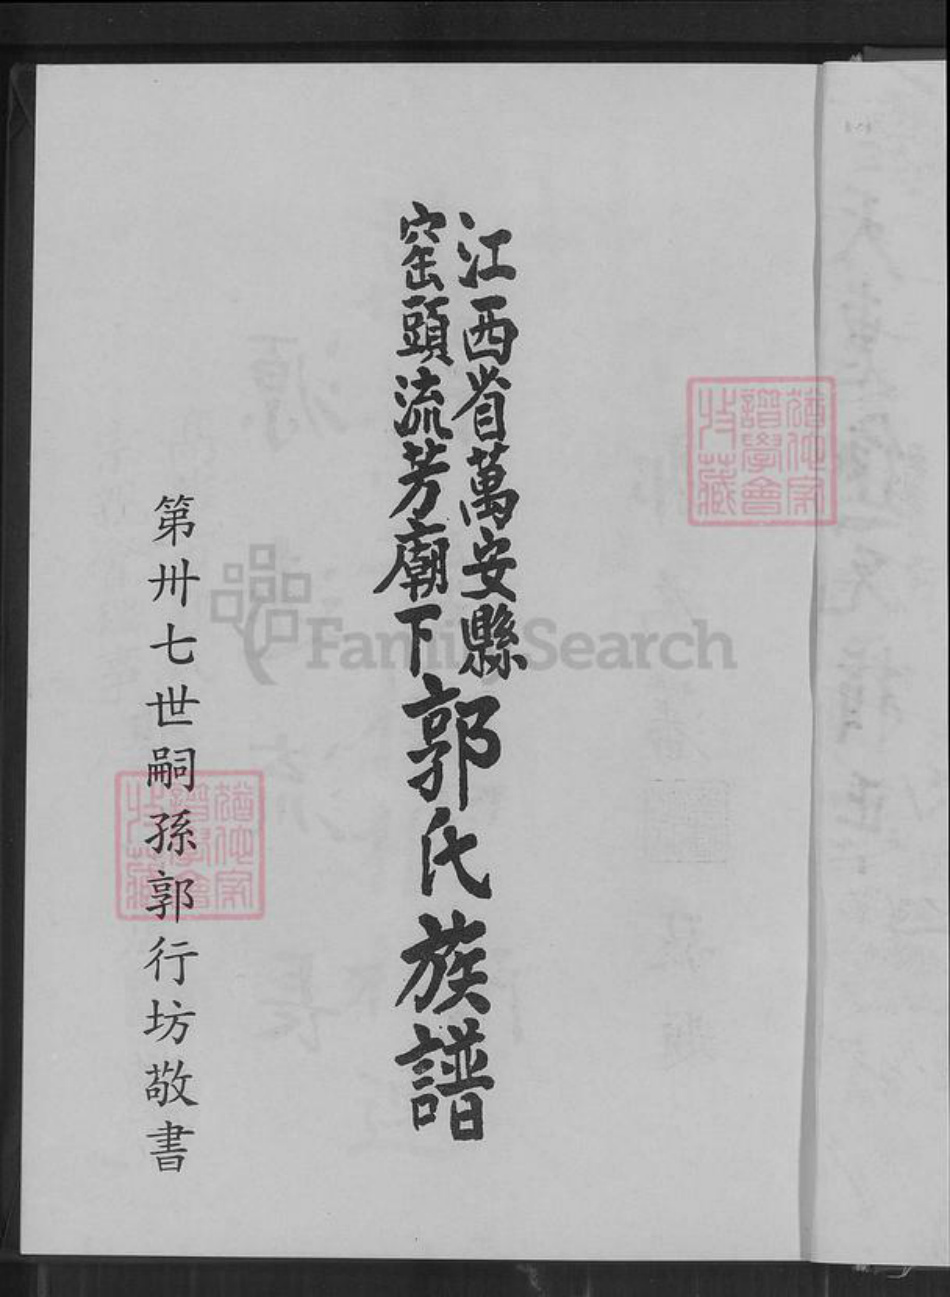 江西省萬安縣
窑頭流芳廟下
郭氏族譜
第卅七世嗣孫郭行坊敬書
猶他家
譜學會
收藏
猶他家
譜學會
收藏
FamilySearch